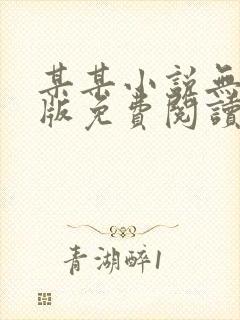 某某小説無
版免費閱讀
青湖醉1